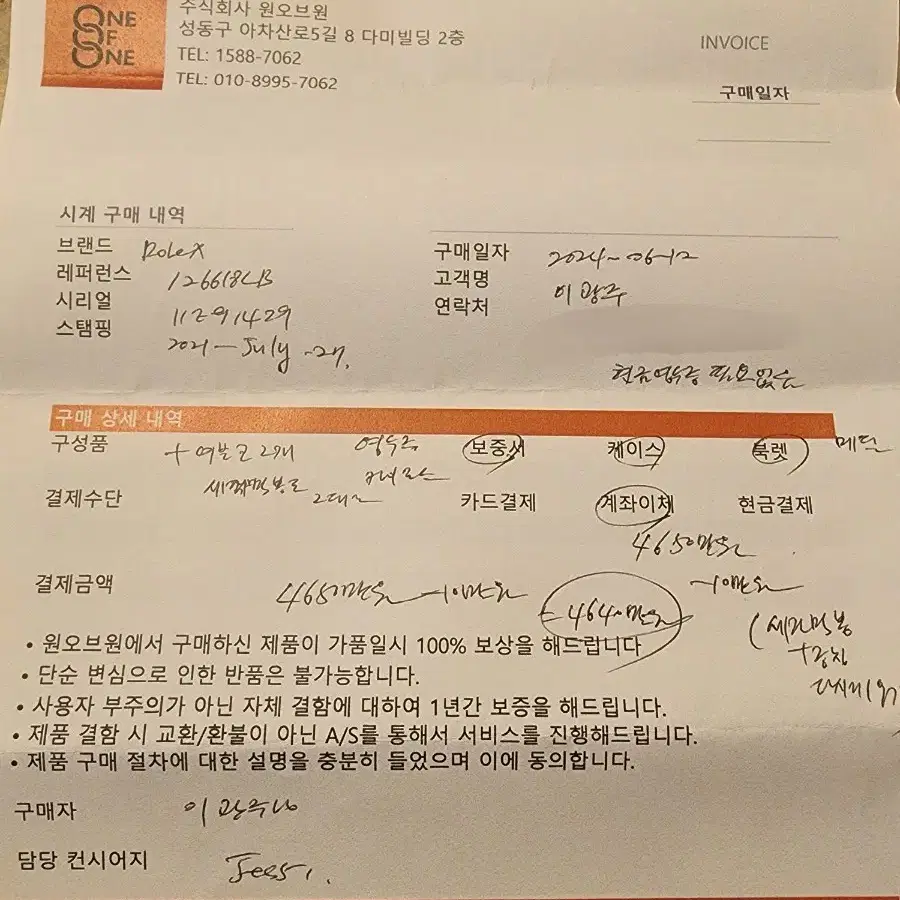 ONE OF ONE
주식회사 원오브원
성동구 아차산로5길 8 다미빌딩 2층
TEL: 1588-7062
TEL: 010-8995-7062
INVOICE
구매일자
시계 구매 내역
브랜드 Rolex
레퍼런스 126618LB
시리얼 11291429
스탬핑 2021-July-27.
구매일자 2024-06-12
고객명 이광주
연락처
현금영수증 필요없음
구매 상세 내역
구성품 + 여분코 2개 보증서 케이스 북렛
결제수단 카드결제 계좌이체 현금결제
4650만원
결제금액 4650만원 -10만원 = 4640만원
-10만원
• 원오브원에서 구매하신 제품이 가품일시 100% 보상을 해드립니다
• 단순 변심으로 인한 반품은 불가능합니다.
• 사용자 부주의가 아닌 자체 결함에 대하여 1년간 보증을 해드립니다.
• 제품 결함 시 교환/환불이 아닌 A/S를 통해서 서비스를 진행해드립니다.
• 제품 구매 절차에 대한 설명을 충분히 들었으며 이에 동의합니다.
구매자 이광주
담당 컨시어지 Jessi.